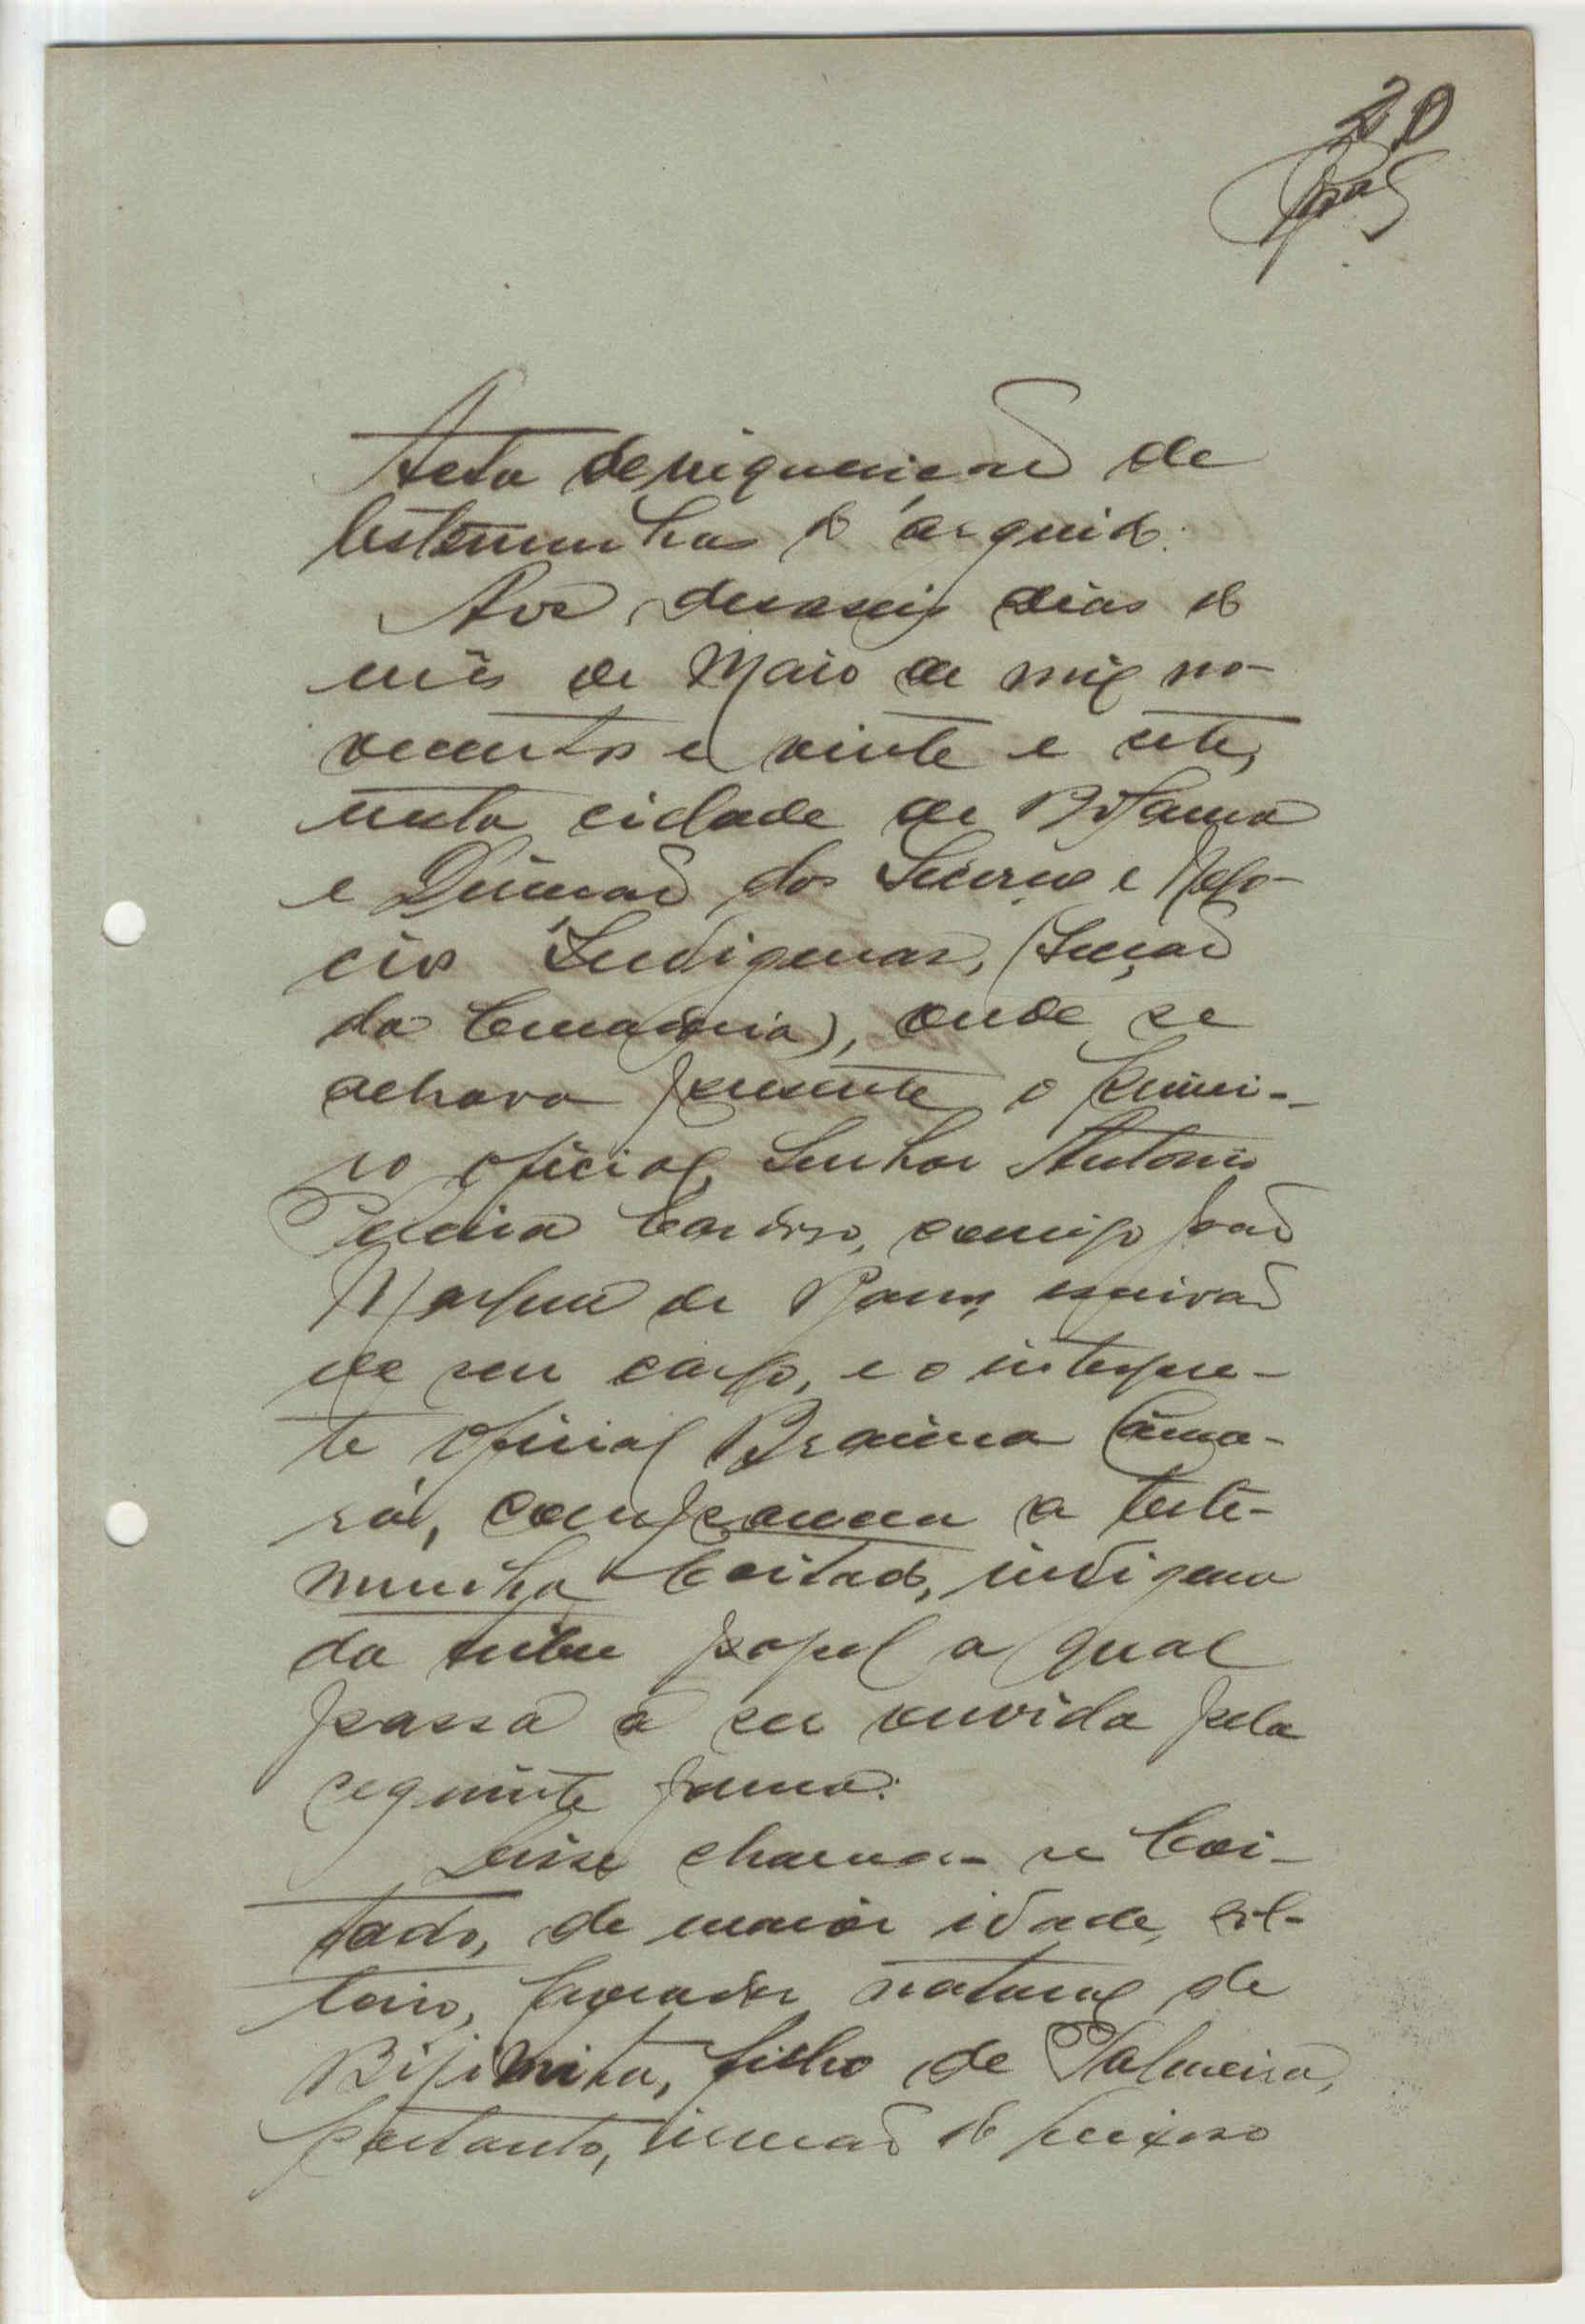 20
Acta de inquirição de
testemunhas do arguido.
Aos desaseis dias do
mês de Maio de mil no-
vecentos e vinte e sete,
nesta cidade de Bolama
e Direcção dos Serviços e Nego-
cios Indigenas, (Secção
da Comarca), onde se
achava presente o primei-
ro oficial, Senhor Antonio
Pereira Cardoso, comigo João
de escrivão
de seu cargo, e o interpre-
te oficial Braima Cama-
rá, compareceu a teste-
munha Coitado, indigena
da tribu papel a qual
passa a ser ouvida pela
seguinte forma:
Disse chamar-se Coi-
tado, de maior idade, sol-
teiro, lavrador natural de
Bijimita, filho de Palmeira,
portanto, irmão do queixoso